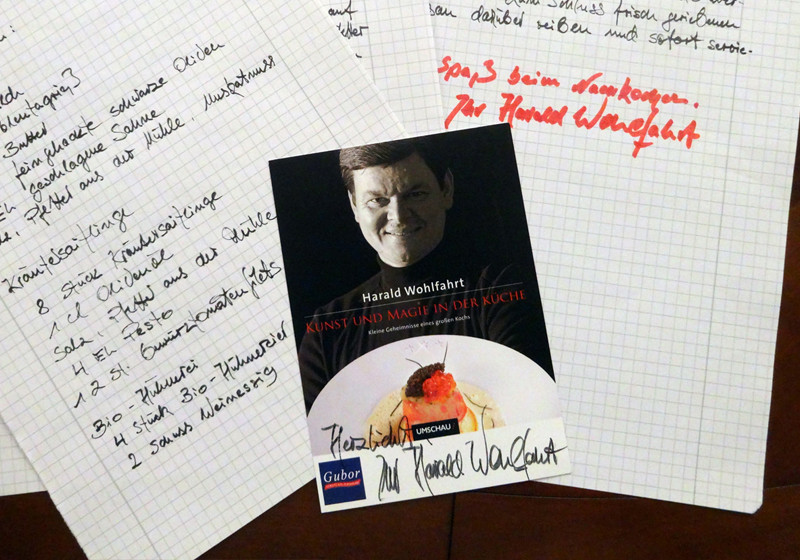 schwarze Oliven
feingehackte
geschlagene Sahne
Pfeffer aus der Mühle, Muskatnuss
Kräutersaitlinge
8 Stück Kräutersaitlinge
1 cl Olivenöl
Salz, Pfeffer aus der Mühle
4 EL Pesto
12 St. Gewürztomatenfilets
Bio-Hühnerei
4 Stück Bio-Hühnereier
2 Schuss Weinessig
frisch geriebenen
darüber reiben und sofort servie-
Spaß beim Nachkochen.
Ihr Harald Wohlfahrt
Harald Wohlfahrt
KUNST UND MAGIE IN DER KÜCHE
Kleine Geheimnisse eines großen Kochs
UMSCHAU
Herzlichst
Ihr Harald Wohlfahrt
Gubor